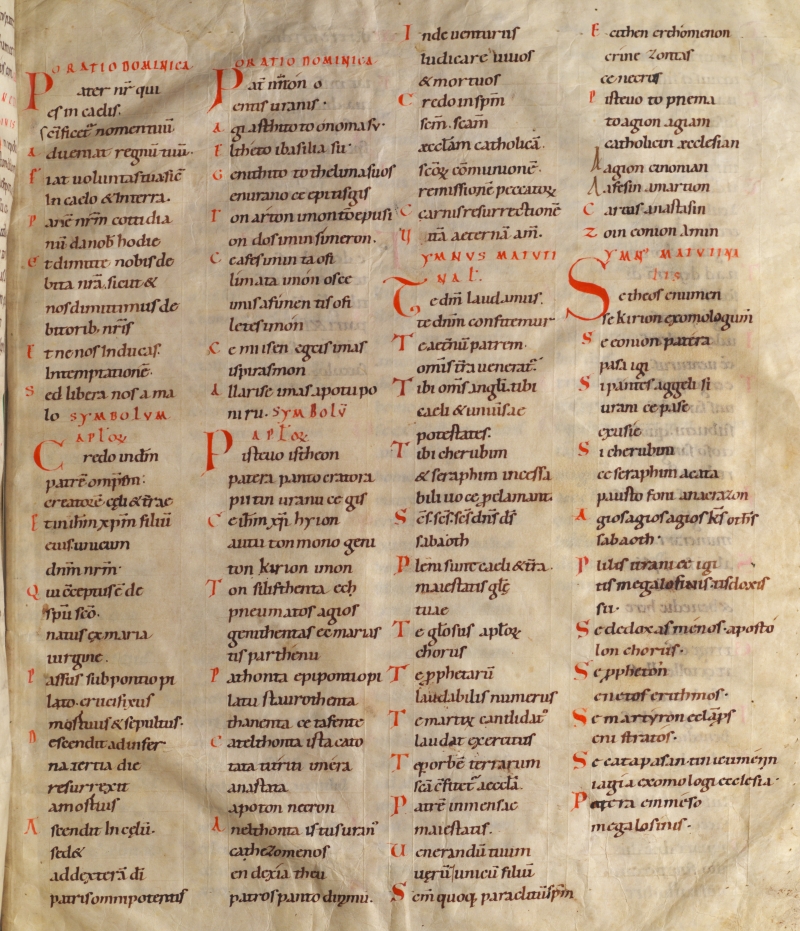 ORATIO DOMINICA
Pater nr̄ qui
es in caelis.
s̄c̄ificet̄ nomen tuū
adueniat regnū tuū.
fiat uoluntas tua sic̄
In caelo & Interra.
panē nr̄m cotti dia
nū danob̄ hodie
etdimitte nobis de
bita nr̄a. sicut &
nos dimittimus de
bitorib; nr̄is
Et nenos Inducas.
Intemptationē.
Sed libera nos a ma
lo SYMBOLVM
APLOꝜ
Credo indm̄
patrē omp̄tm̄.
creatorē cęli & tr̄ae
Et in ih̄m xp̄m filiū
eius unicum
dnm̄ nrm̄.
Qui c̄ceptus ē de
sp̄u sc̄o.
natus ex maria
uirgine.
Passus sub pontio pi
lato. crucifixus
mortuus & sepultus.
Descendit ad infer
na tertia die
resurrexit
amortuis
Ascendit In cęlū.
sed&
ad dexterā dī
patris omnipotentis
ORATIO DOMINICA
Pat̄ im̄on o
enuis uranis.
Agiasthito to onomasu.
Eltheto ibasilia su.
Genithito to thelima suos
enurano ce epitisgis
Ton arton imon tōepiusi
on dos imin simeron.
Ce afes imin ta ofi
limata imōn osce
imis afimen tis ofi
letes imōn
Ce mi isen egcis imas
is pirasmon
Alla rise imas apotu po
niru. SYMBOLŪ
APLOꝜ
Pisteuo istheon
patera pantocratora
piitin uranu ce gis
Ce ih̄m xp̄i hyion
autu ton mono geni
ton kirion imon
Ton silifthenta ech
pneumatos agios
genithentas ec marias
tis parthenu
Pathonta epipontiopi
latu staurothenta
thanenta ce tafente
Catelthonta ista cato
tata tiitriti imēra
anastata
apoton necron
Anelthonta is tus uran̄
cathezomenos
en dexia theu
patros panto dinmu.
Inde uenturus
Iudicare uiuos
& mortuos
Credo insp̄m
sc̄m. sc̄am
æcclām catholicā.
sc̄oꝝ cōmunionē.
remissionē peccatoꝝ
Carnis resurrectionē
Uitā aeternā am̄.
YMNVS MATVTI
NAL̄.
Te dm̄ laudamus.
te dnm̄ confitemur
Te aet̄nū patrem.
om̄is tr̄a ueneratˀ.
Tibi om̄s angli. tibi
caeli & uniūsae
potestates.
Tibi cherubim
& seraphim incessa
bili uoce ꝓclamant.
Sc̄s. sc̄s. sc̄s dn̄s ds̄
sabaoth
Pleni sunt caeli & tr̄a.
maiestatis glę̄
tuae
Te gl̄osus apl̄oꝝ
chorus
Te ꝓphetarū
laudabilis numerus
Te martirū candidatˀ
laudat exercitus
Te ꝑ orbē terrarum
sc̄a c̄fitet̄ aecclā.
Patrē inmensae
maiestatis.
Uenerandū tuum
uerū & unicū filiū
Sc̄m quoq; paraclitū sp̄m
Ecithen erchomenon
crine zontas
ce necrus
Pisteuo to pnema
to agion agiam
catholicin æcclesian
Aagion cinonian
Aafesin amartion
Carcus anastasin
Zoin eonion Amin
YMNˀ MATVTINA
LIS.
Se theos enumen
se kirion exomologumi
Se eonion patera
pasa igi
Si pantes aggeli si
uram ce pase
exusie
Si cherubim
ce seraphim acata
pausto foni anacrazon
Agios agios agios k̄s oth̄s
sabaoth.
Pliis urani ce igi
tis megalosinis tis doxis
su.
Se dedoxas menos. aposto
lon chorus.
Se ꝓpheton
enetos erithmos.
Se martyron eclāps
eni stratos.
Se cata pasan tin icumenin
iagia exomologi ecclesia.
Patera enmeso
megalosinis.